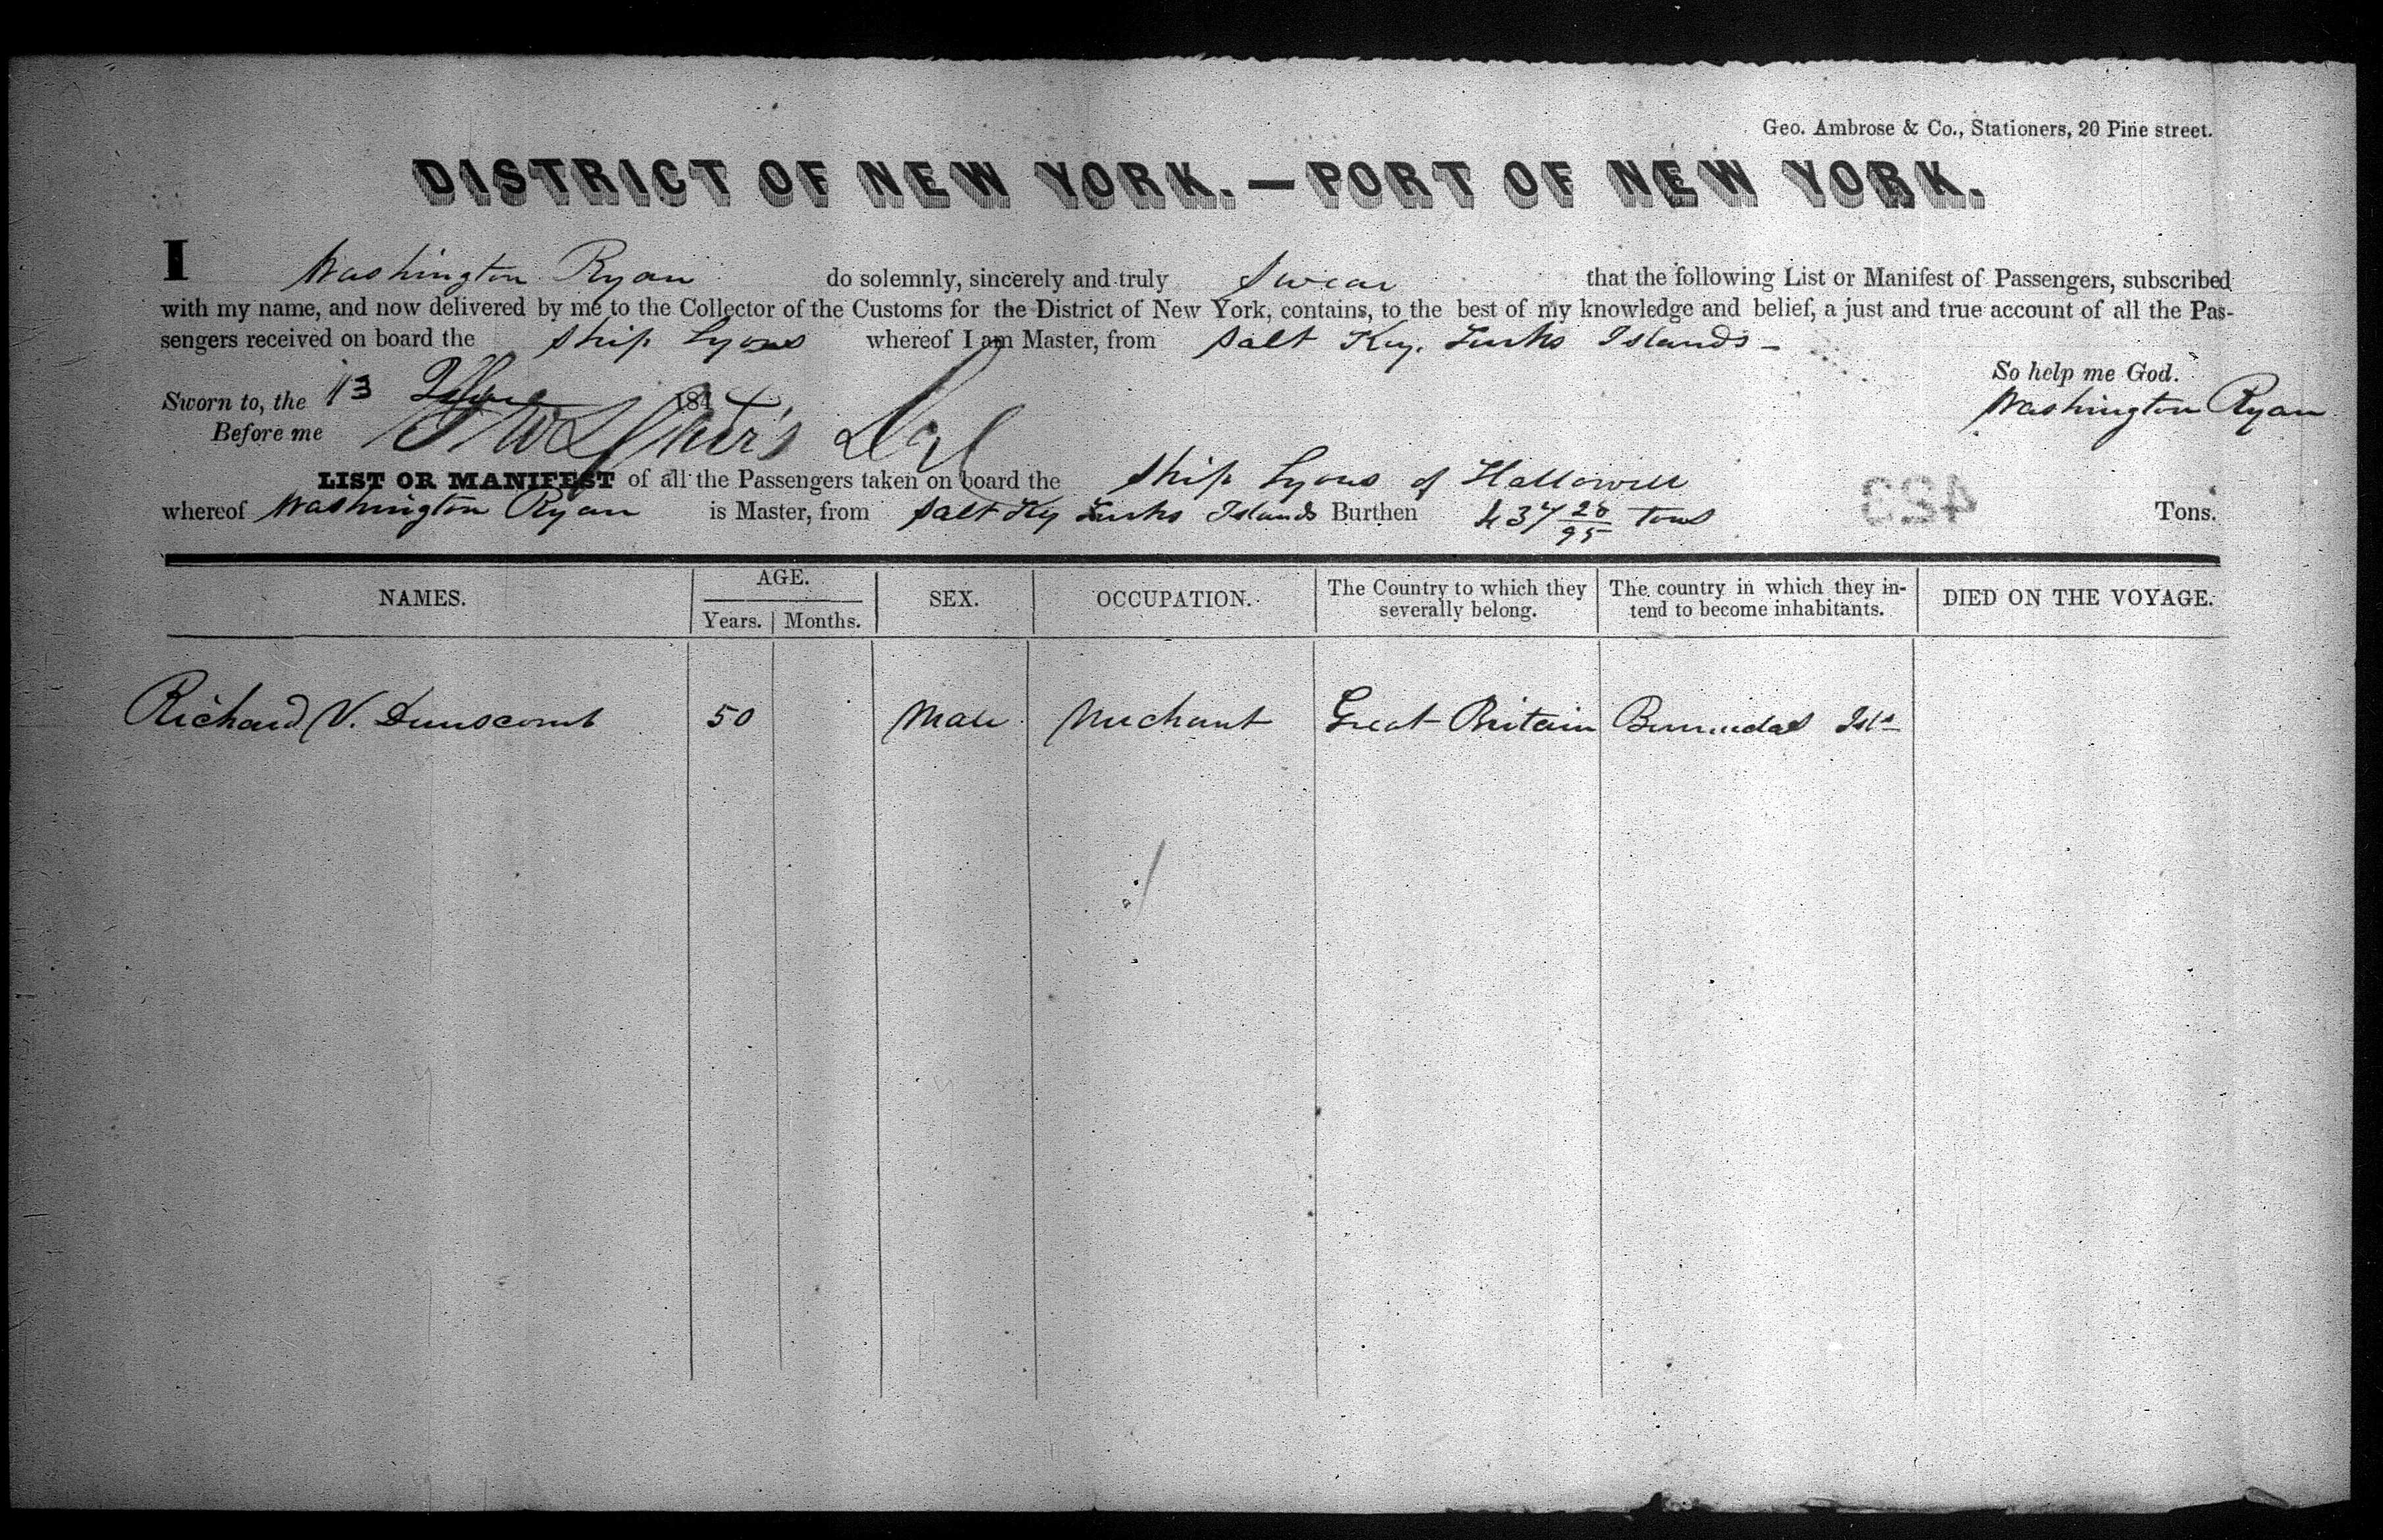 Geo. Ambrose & Co., Stationers, 20 Pine street.
DISTRICT OF NEW YORK.—PORT OF NEW YORK.
I Washington Ryan do solemnly, sincerely and truly Swear that the following List or Manifest of Passengers, subscribed
with my name, and now delivered by me to the Collector of the Customs for the District of New York, contains, to the best of my knowledge and belief, a just and true account of all the Pas-
sengers received on board the Ship Lyons whereof I am Master, from Salt Key, Turks Islands -
So help me God.
Sworn to, the 13 184
Washington Ryan
Before me
LIST OR MANIFEST of all the Passengers taken on board the Ship Lyons of Hallowell
whereof Washington Ryan is Master, from Salt Key Turks Islands Burthen 437 28/95 Tons Tons.
423
NAMES. AGE. SEX. OCCUPATION. The Country to which they severally belong. The country in which they in-tend to become inhabitants. DIED ON THE VOYAGE.
Years. Months.
Richard V. Dunscomb 50 Male Merchant Great Britain Bermudas Isls